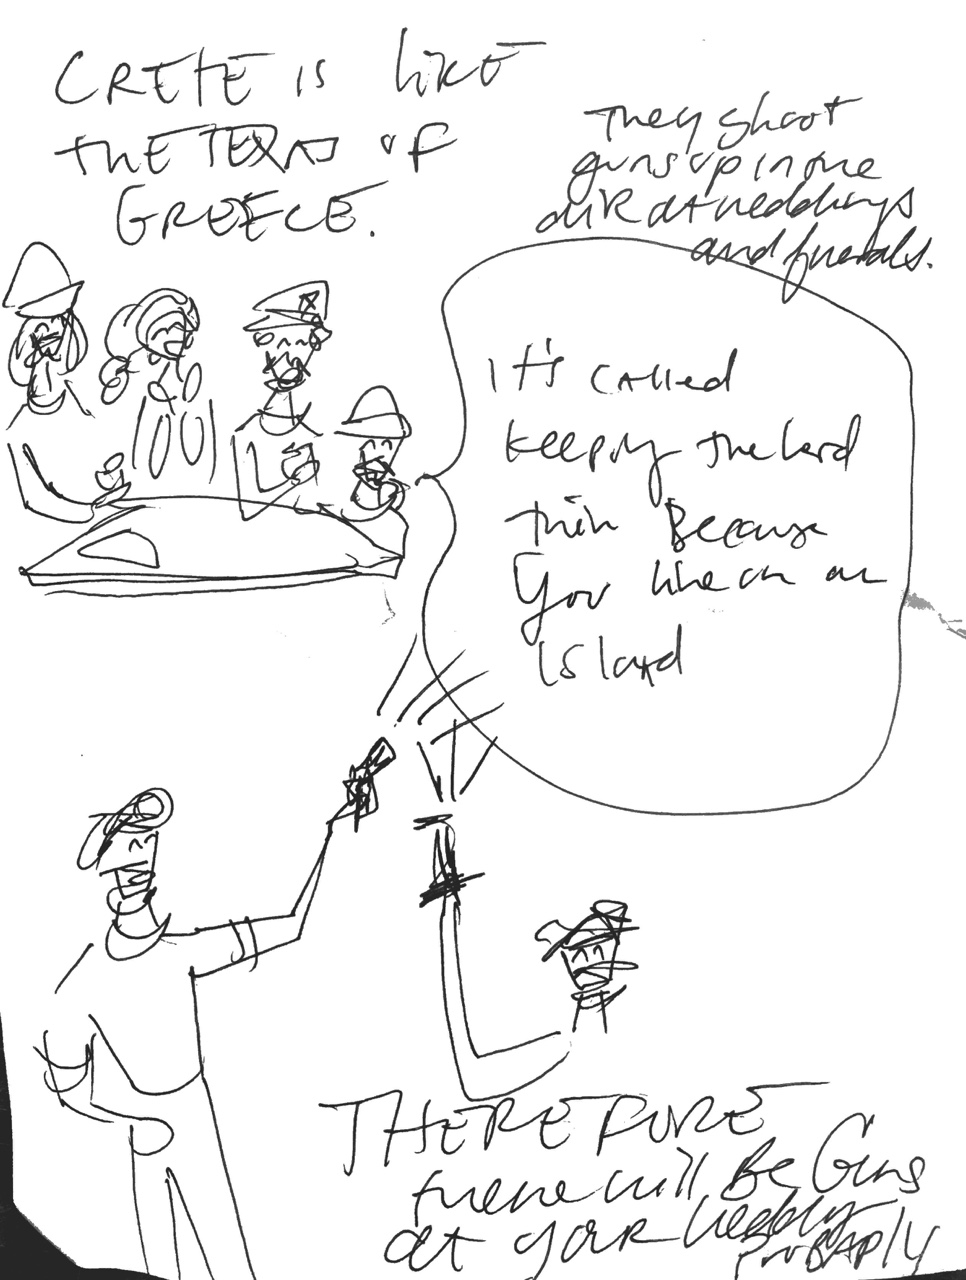 CRETE IS LIKE
THE TEXAS OF
GREECE.
They shoot
guns up in the
AIR at weddings
and funerals.
It's called
keeping the herd
thin Because
You live on an
Island
THEREFORE
there will Be Guns
at your wedding
PROBABLY